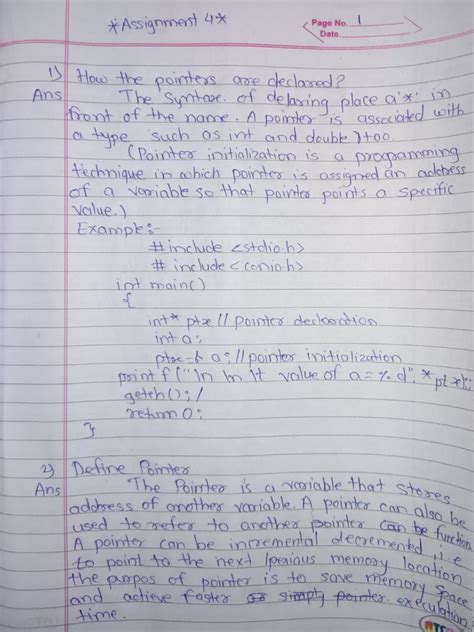 *Assignment 4*
Page No. 1
Date.
1) How the pointers are declared?
Ans The Syntax. of delaring place a '*' in
front of the name. A pointer is associated with
a type such as int and double) too.
(Pointer initialization is a programming
technique in which pointer is assigned an address
of a variable so that pointer points a specific
value.)
Example:-
# include <stdio.h>
# include <conio.h>
int main()
{
int* ptr // pointer declaration
int a;
a; // pointer initialization
printf ("\n \n \t value of a = %d", * ptr);
getch(); /
return 0;
}
2) Define Pointer
Ans The Pointer is a variable that stores
address of another variable. A pointer can also be
used to refer to another pointer can be function
A pointer can be incremental decremented i.e
to point to the next / pervious memory location
the purpos of pointer is to save memory space
and active faster or simply pointer execulation
time.